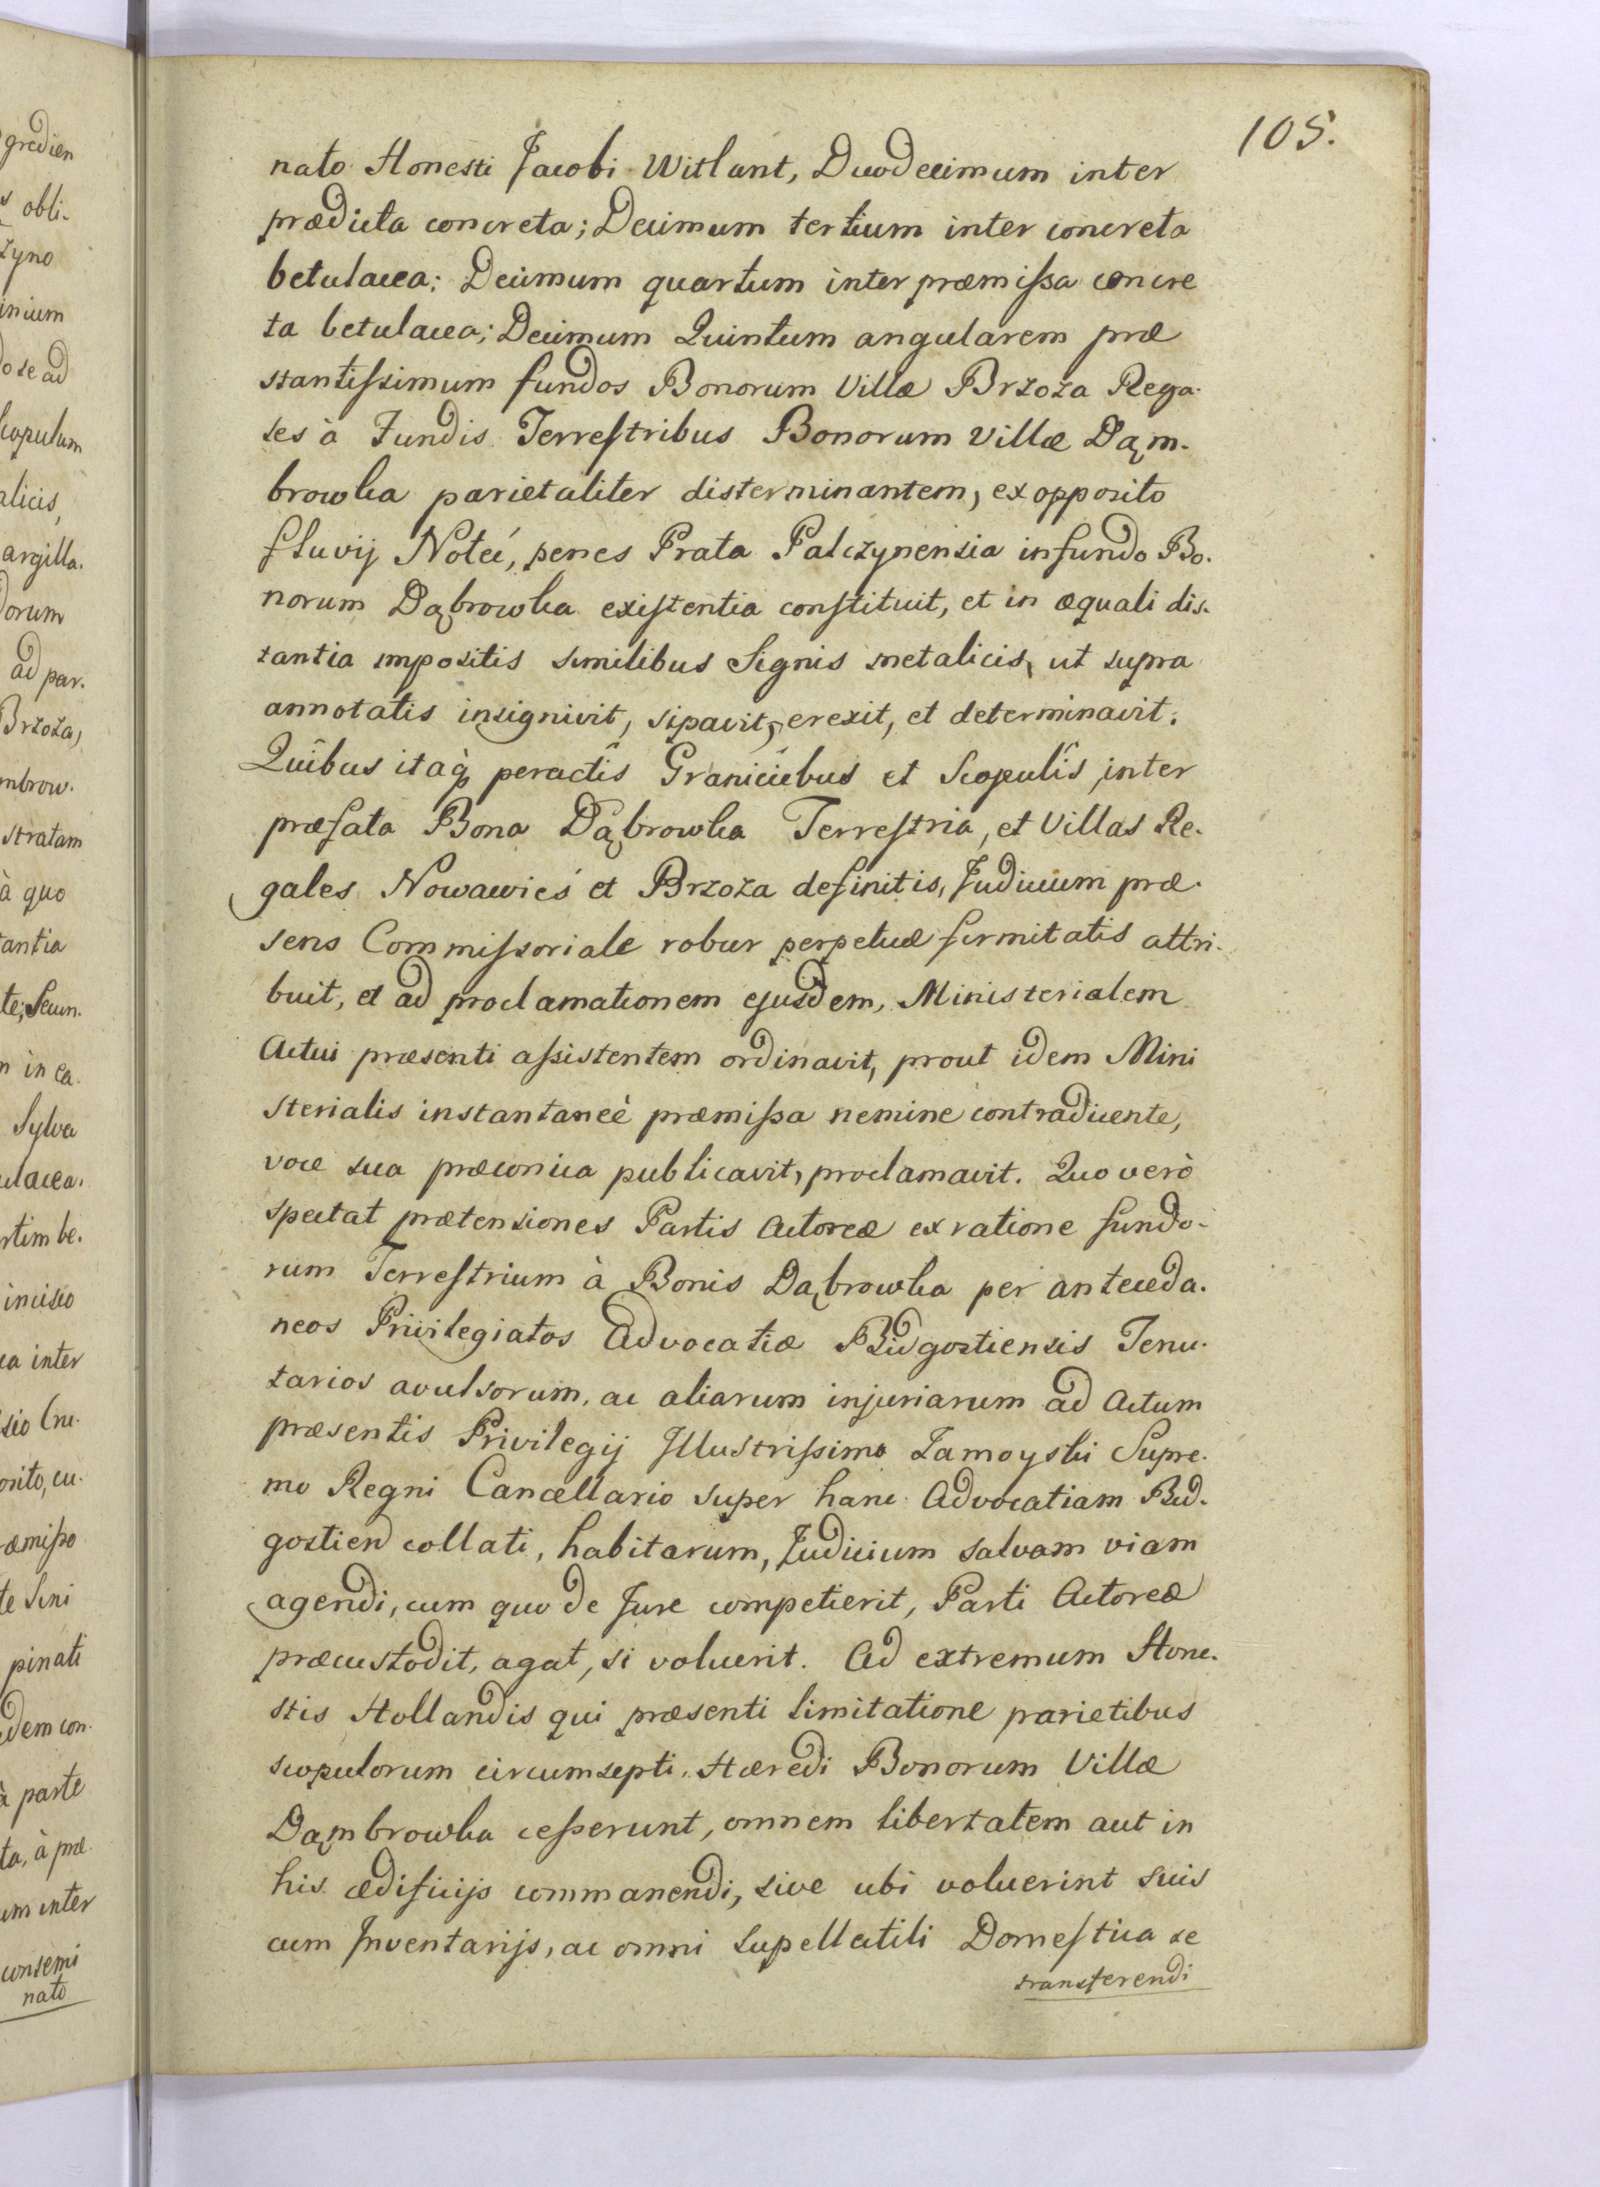 105.
nato Honesti Jacobi Witlant, Duodecimum inter
prædicta concreta; Decimum tertium inter concreta
betulacea; Decimum quartum inter præmissa concre
ta betulacea; Decimum Quintum angularem præ
stantissimum fundos Bonorum Villæ Brzoza Rega-
les à Fundis Terrestribus Bonorum Villæ Dąm-
browka parietaliter disterminantem, ex opposito
fluvij Noteć, penes Prata Palczynensia in fundo Bo-
norum Dąbrowka existentia constituit, et in æquali dis-
tantia impositis similibus Signis metalicis, ut supra
annotatis insignivit, sipavit, erexit, et determinavit.
Quibus itaq̀ peractis Graniciebus et Scopulis, inter
præfata Bona Dąbrowka Terrestria, et Villas Re-
gales Nowawieś et Brzoza definitis, Judicium præ-
sens Commissoriale robur perpetuæ firmitatis attri-
buit, et ad proclamationem ejusdem, Ministerialem
Actui præsenti assistentem ordinavit, prout idem Mini
sterialis instantaneè præmissa nemine contradicente,
voce sua præconica publicavit, proclamavit. Quo verò
spectat prætensiones Partis Actoreæ ex ratione fundo-
rum Terrestrium à Bonis Dąbrowka per anteceda-
neos Privilegiatos Advocatiæ Bidgostiensis Tenu-
tarios avulsorum, ac aliarum injuriarum ad Actum
præsentis Privilegij Illustrissimo Zamoyski Supre-
mo Regni Cancellario super hanc Advocatiam Bid-
gostien collati, habitarum, Judicium salvam viam
agendi, cum quo de Jure competierit, Parti Actoreæ
præcustodit, agat, si voluerit. Ad extremum Hone-
stis Hollandis qui præsenti limitatione parietibus
scopulorum circumsepti, Hæredi Bonorum Villæ
Dąmbrowka cesserunt, omnem libertatem aut in
his ædificijs commanendi, sive ubi voluerint suis
cum Inventarijs, ac omni Supellectili Domestica se
transferendi
gredien
obli-
zyno
inium
do se ad
Scopulum
alicis,
argilla-
dorum
ad par-
Brzoza,
mbrow-
stratam
à quo
tantia
te; Secun-
in ea
Sylva
ulacea.
rtim be-
inciso
ea inter
sio Cru-
osito, cu-
æmisso
te Sini
pinati
dem con-
à parte
ta, à præ
um inter
consemi
nato